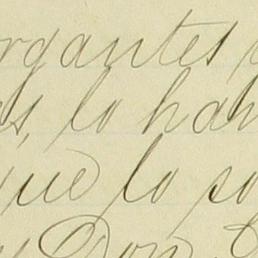 rgantes
s, lo han
que lo so
y Don